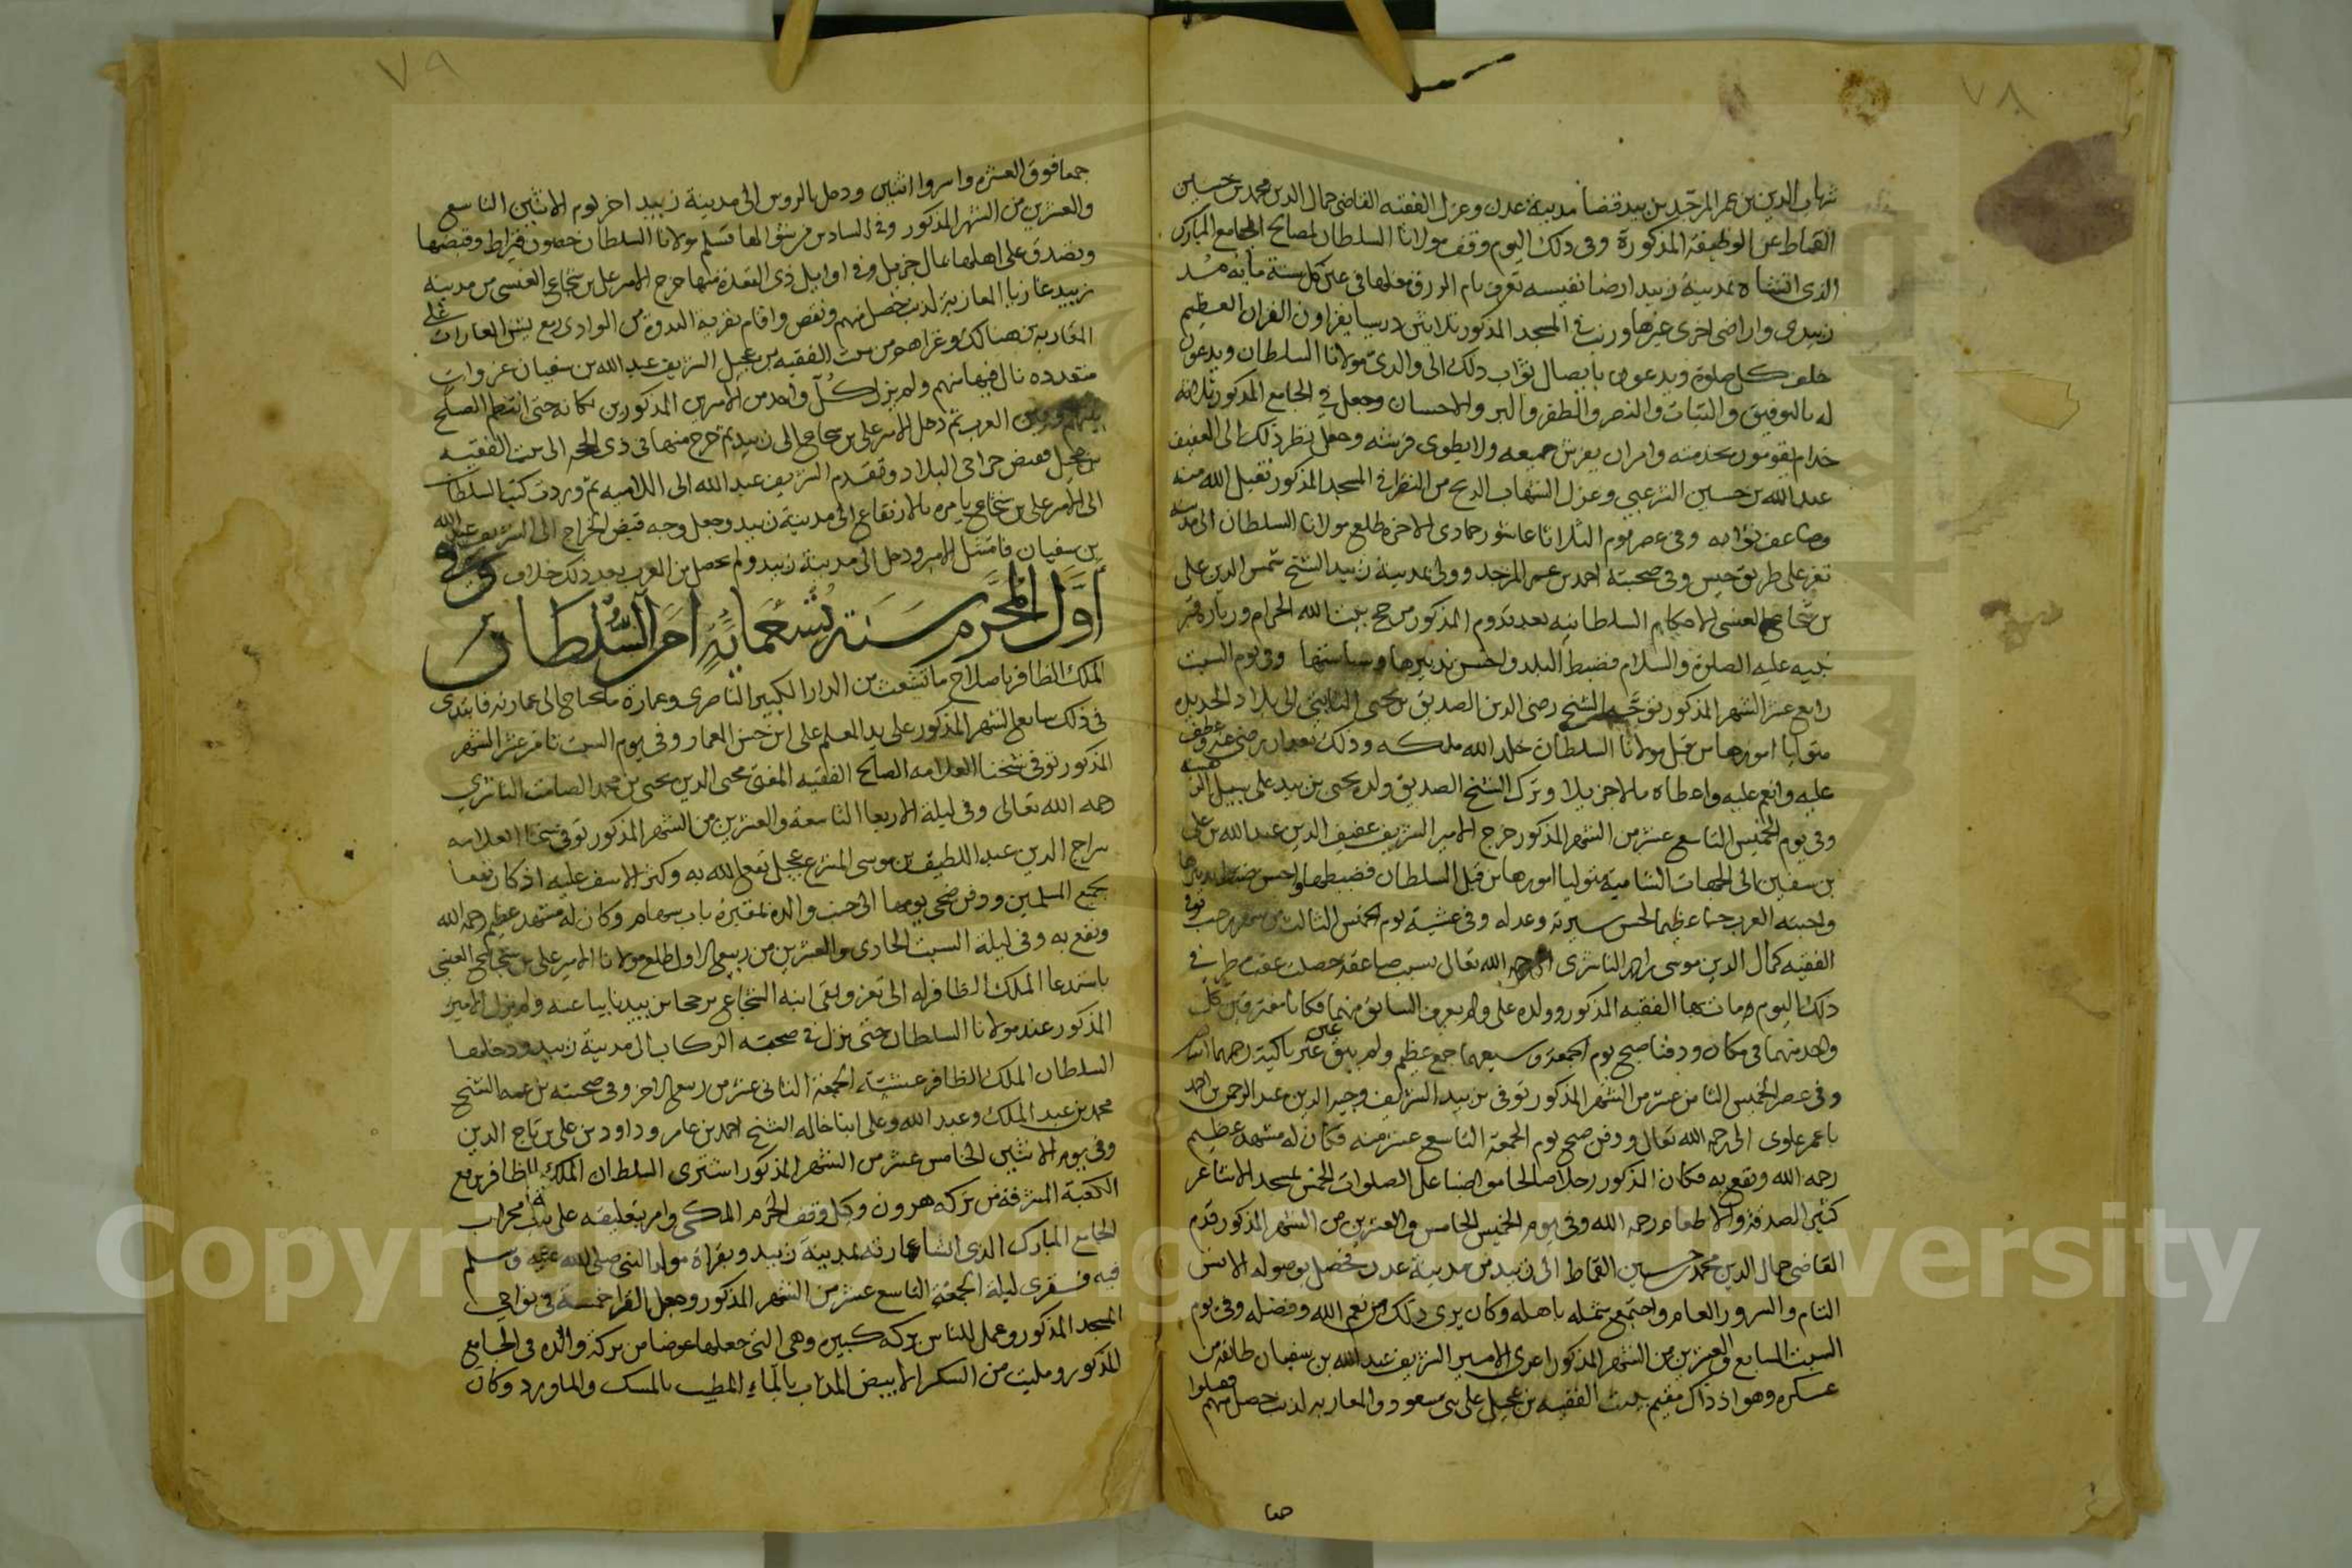 ٧٨
شهاب الدين بن عمر المزجد بن بيد قضا مدينة عدن وعزل الفقيه القاضي جمال الدين محمد بن حسين
القماط عن الوظيفة المذكورة وفي ذلك اليوم وقف مولانا السلطان لمصالح الجامع المبارك
الذي انشاه بمدينة زبيد ارضا نفيسه تعرف بام الورق مغلها في كل سنة مايه مد
زبيدى واراضى اخرى غيرها ورتب في المسجد المذكور ثلاثين درسيا يقراون القران العظيم
خلف كل صلوة ويدعون بايصال ثواب ذلك الى والدى مولانا السلطان ويدعون
له بالتوفيق والثبات والنصر والظفر والبر والاحسان وجعل في الجامع المذكور ثلاثه
خدام يقومون بخدمته وامر ان يفرش جميعه ولا يطوى فرشه وجعل نظر ذلك الى العفيف
عبد الله بن حسين الشرعبي وعزل الشهاب من النظر في المسجد المذكور تقبل الله منه
وضاعف ثوابه وفى عصر يوم الثلاثا عاشر جمادى الاخره طلع مولانا السلطان الى مدينة
تعز على طريق حيس وفى صحبته احمد بن عمر المزجد وولى بمدينة زبيد الشيخ شمس الدين على
بن شجاع العنسى الاحكام السلطانيه بعد قدوم المذكور من حج بيت الله الحرام وزيارة قبر
نبيه عليه الصلوة والسلام فضبط البلد واحسن تدبيرها وسياستها وفى يوم السبت
رابع عشر الشهر المذكور توجه الشيخ رضى الدين الصديق بن يحيى الى بلاد الحديده
متوليا امورها من قبل مولانا السلطان خلد الله ملكه وذلك بعد ان رضى عنه وعطف
عليه وانعم عليه واعطاه مالا جزيلا وترك الشيخ الصديق ولده يحيى بن بيد على سبيل الرهينه
وفى يوم الخميس التاسع عشر من الشهر المذكور خرج الامير الشريف عفيف الدين عبد الله بن على
بن سفين الى الجهات الشامية متوليا امورها من قبل السلطان فضبطها واحسن ضبطها وتدبيرها
واحبته العرب حبا عظيما لحسن سيرته وعدله وفى عشية يوم الخميس الثالث من شهر رجب توفى
الفقيه كمال الدين موسى الناشرى الى رحمة الله تعالى بسبب صاعقه حصلت عقب مطر في
ذلك اليوم ومات بها الفقيه المذكور وولده على ولم يعرف السابق منهما فكانا مفترقين كل
واحد منهما في مكان ودفنا صبح يوم الجمعة وشيعهما جمع عظيم ولم يبق عين غير باكية رحمهما الله
وفى عصر الخميس الثامن عشر من الشهر المذكور توفى بن بيد الشريف وجيه الدين عبد الرحمن بن احمد
با عمر علوى الى رحمة الله تعالى ودفن صبح يوم الجمعة التاسع عشر منه فكان له مشهد عظيم
رحمه الله ونفع به وكان المذكور رجلا صالحا مواضبا على الصلوات الخمس بمسجد الاشاعر
كثير الصدقة والاطعام رحمه الله وفى يوم الخميس الخامس والعشرين من الشهر المذكور قدم
القاضى جمال الدين محمد حسين القماط الى زبيد من مدينة عدن فحصل بوصوله الانس
التام والسرور العام واجتمع شمله باهله وكان يرى ذلك من نعم الله وفضله وفى يوم
السبت السابع والعشرين من الشهر المذكور اغرى الامير الشريف عبد الله بن سفيان طائفه من
عسكره وهو اذ ذاك مقيم ببيت الفقيه بن عجيل على بنى مسعود والمعازبه لذنب حصل منهم فقتلوا
جمعا
٧٩
جمعا فوق العشره واسروا اثنين ودخل بالروس الى مدينة زبيد اخر يوم الاثنين التاسع
والعشرين من الشهر المذكور وفى السادس من شوالها تسلم مولانا السلطان حصون قيراط وقبضها
وتصدق على اهلها بمال جزيل وفى اوايل ذى القعدة منها خرج الامير على بن شجاع العنسى من مدينة
زبيد غازيا المعازبة لذنب حصل منهم ونقص واقام بقرية البدوة من الوادى ربع يشن الغارات على
المعازبه من هنالك وغزاهم من بيت الفقيه بن عجيل الشريف عبد الله بن سفيان غزوات
متعدده نال فيها منهم ولم يزل كل واحد من الاميرين المذكورين مكانه حتى انتظم الصلح
بينهم وبين العرب ثم دخل الامير على بن شجاع الى زبيد ثم خرج منها في ذى الحجه الى بيت الفقيه
بن عجيل فقبض خراجي البلاد وتقدم الشريف عبد الله الى اللاميه ثم وردت كتب السلطان
الى الامير على بن شجاع يامره بالارتفاع الى مدينة زبيد وجعل وجه قبض الخراج الى الشريف عبد الله
بن سفيان فامتثل الامر ودخل الى مدينة زبيد ولم يحصل بن العرب بعد ذلك خلاف وفي
أول المحرم سنة تسعمائة امر السلطان
الملك الظافر باصلاح ما تشعث من الدار الكبير الناصرى وعمارة ما يحتاج الى عمارته فابتدى
فى ذلك سابع الشهر المذكور على يد المعلم على ابن حسن المعمار وفى يوم السبت ثامن عشر الشهر
المذكور توفى شيخنا العلامه الصالح الفقيه المفتى محيى الدين يحيى بن محمد الصامت الناشري
رحمه الله تعالى وفى ليلة الاربعا التاسعة والعشرين من الشهر المذكور توفى شيخنا العلامه
سراج الدين عبد اللطيف بن موسى المشرع عجيل نفع الله به وكثر الاسف عليه اذ كان نفعا
بجميع المسلمين ودفن ضحى يومها الى جنب والده بمقبرة باب سهام وكان له مشهد عظيم رحمه الله
ونفع به وفى ليلة السبت الحادى والعشرين من ربيع الاول طلع مولانا الامير على بن شجاع العنسى
باستدعا الملك الظافر له الى تعز وبقى ابنه الشجاع بن بيد نايبا عنه ولم يزل الامير
المذكور عند مولانا السلطان حتى نزل في صحبته الركاب الى مدينة زبيد ودخلها
السلطان الملك الظافر عشية الجمعة الثانى عشر من ربيع الاخر وفى صحبته بن عمه الشيخ
محمد بن عبد الملك وعبد الله وعلى ابنا خاله الشيخ احمد بن عامر وداود بن على بن تاج الدين
وفى يوم الاثنين الخامس عشر من الشهر المذكور اشترى السلطان الملك الظافر برقع
الكعبة المشرفة من تركه هرون وكيل وقف الحرم المكى وامر بتعليقه على باب محراب
الجامع المبارك الذى انشا عمارته بمدينة زبيد وبقراة مولد النبى صلى الله عليه وسلم
فيه فقرى ليلة الجمعة التاسع عشر من الشهر المذكور وجعل القرا خمسة في نواحي
المسجد المذكور وعمل للناس بركه كبيره وهى التى جعلها عوضا من بركة والده فى الجامع
المذكور ومليت من السكر الابيض المذاب بالماء المطيب بالمسك والماورد وكان